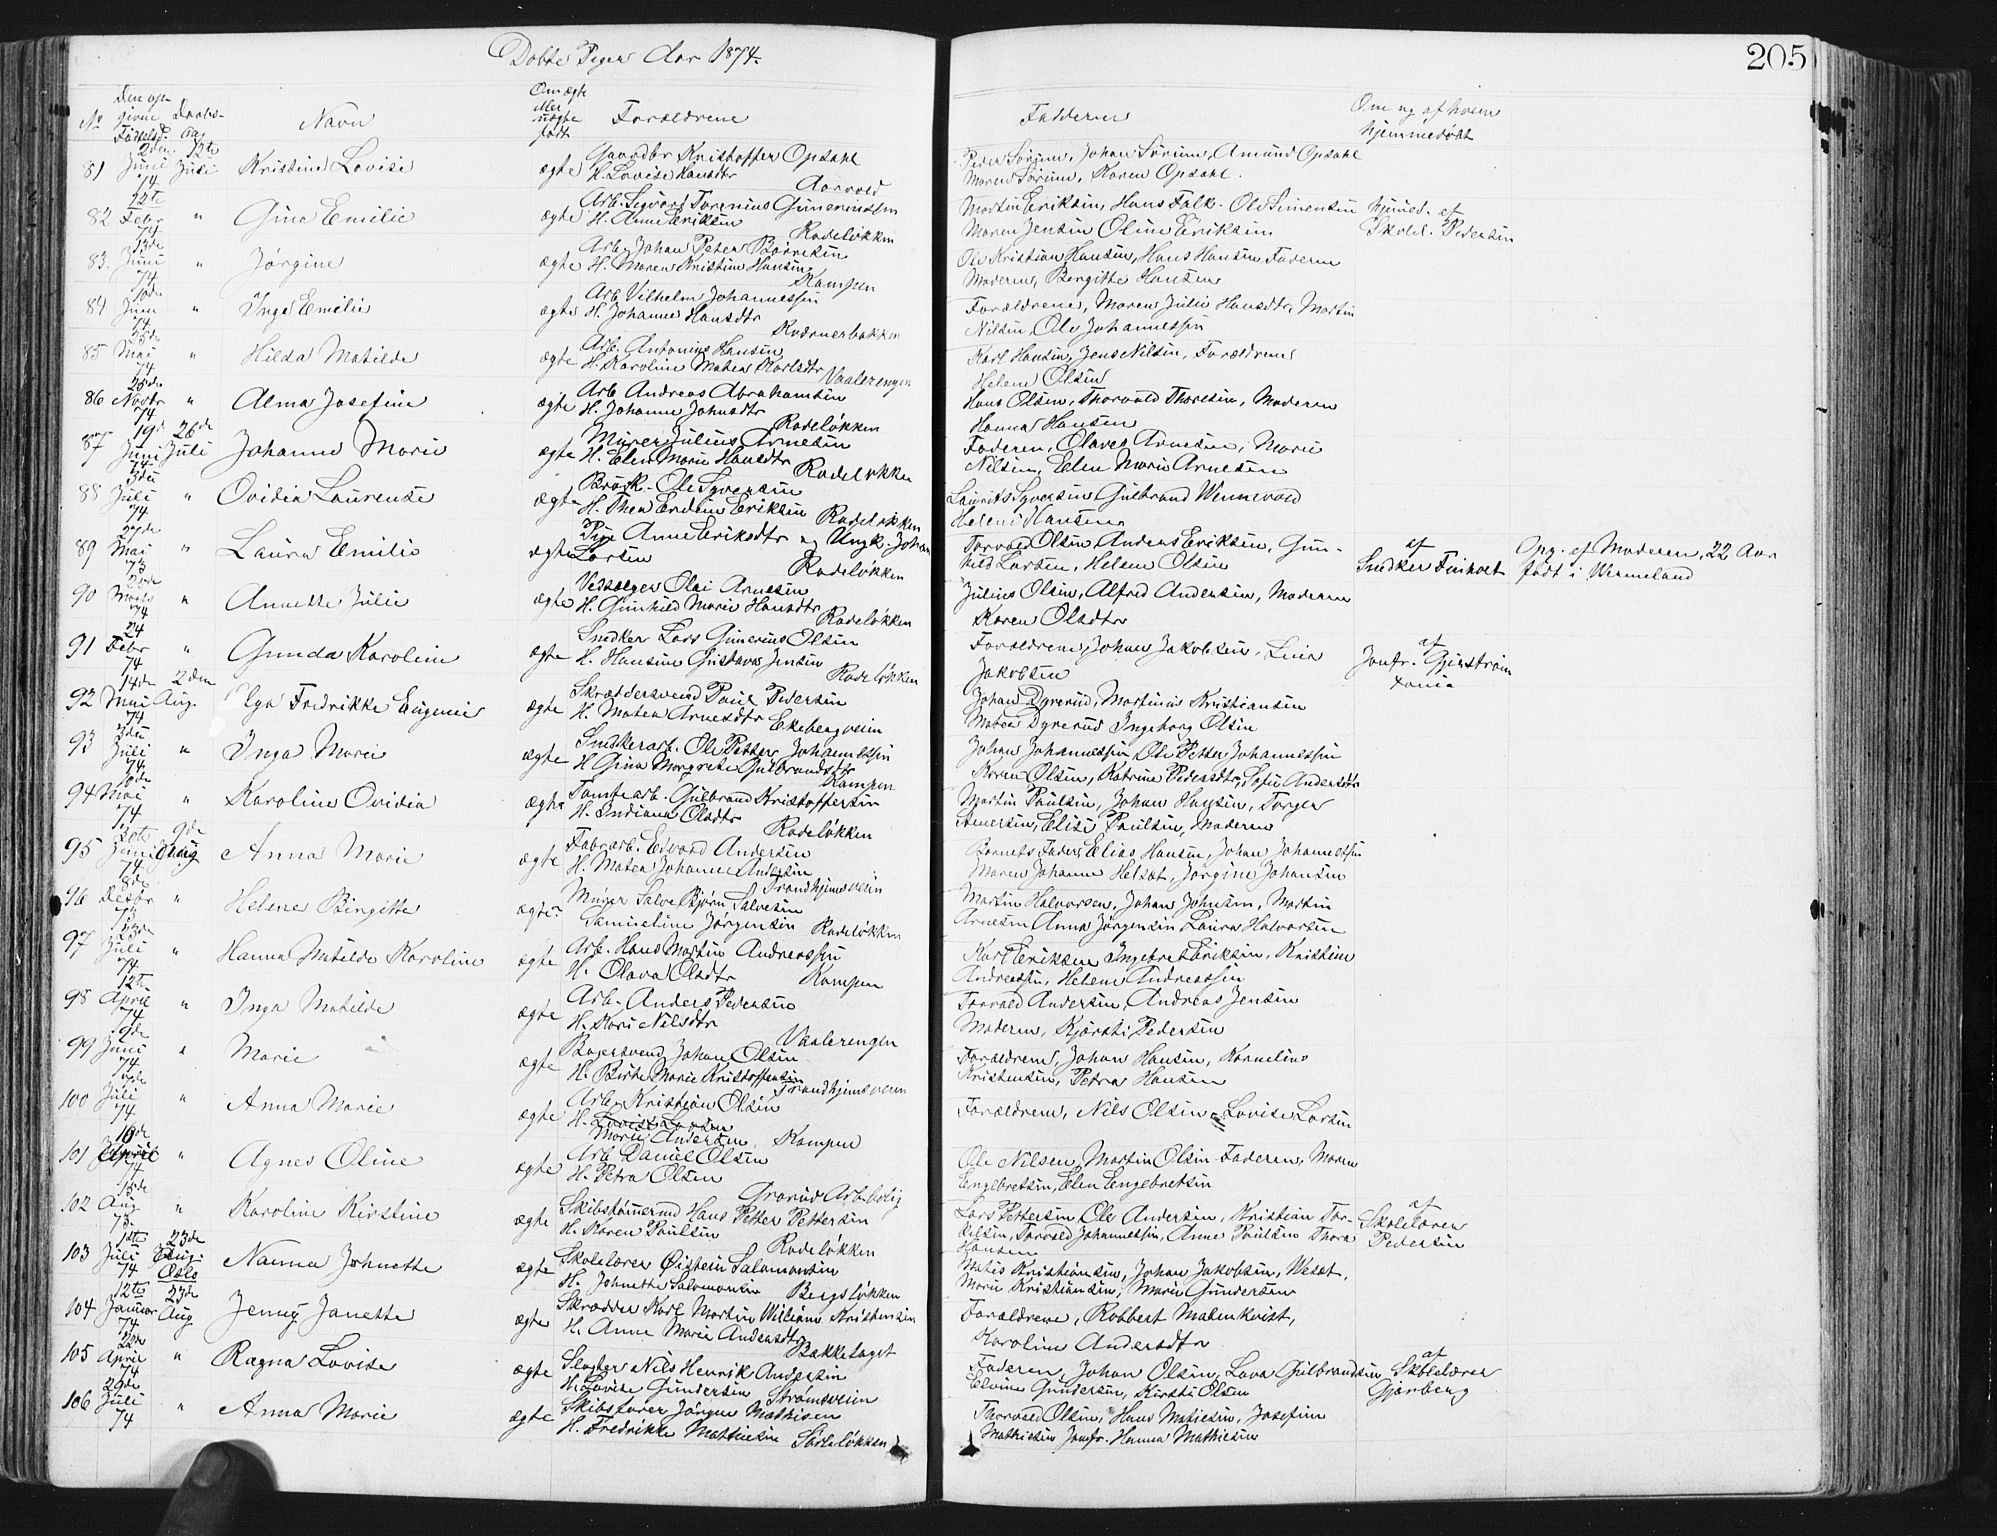 Døbte Piger Aar 1874.
205
No
Den op-
givne
Fødselsd.
Daabs-
Dag
Navn
Om ægte
eller
uægte
født
Forældrene
Fadderne
Om og af hvem
hjemmedøbt
81 2den Juni 74 12te Juli Kristine Lovise ægte Gaardbr Kristoffer Opsahl
H. Lovise Hansdtr Aarvold
Peder Sørum, Johan Sørum, Amund Opsahl
Maren Sørum, Karen Opsahl.
82 12te Febr 74 " Gina Emilie ægte Arb. Sigvard Torenius Guneriussen
H. Anne Eriksen Rodeløkken
Martin Eriksen, Hans Falk. Ole Simensen
Maren Jensen Oline Eriksen
hjemd. af
Skolel. Pedersen
83. 13de Juni 74 " Jørgine ægte Arb. Johan Peter Børresen
H. Maren Kristine Hansen Kampen
Ole Kristian Hansen, Hans Hansen, Faderen
Moderen, Bergitte Hansen
84 10de Juni 74 " Inga Emilie ægte Arb Vilhelm Johannessen
H. Johanne Hansdtr Kværnerbakken
Forældrene, Maren Julie Hansdtr, Martin
Nilsen, Ole Johannessen
85 25de Mai 74 " Hilda Matilde ægte Arb. Antonius Hansen
H. Karoline Matea Karlsdtr Vaalerengen
Karl Hansen, Jens Nilsen, Forældrene
Helene Olsen
86 28de Novbr 74 " Alma Josefine ægte Arb Andreas Abrahamsen
H. Johanne Johnsdtr Rodeløkken
Hans Olsen, Thorvald Thoresen, Moderen
Hanna Hansen
87 19d Juni 74 26de Juli Johanne Marie ægte Murer Julius Arnesen
H. Elen Marie Hansdtr Rodeløkken
Faderen, Olaves Arnesen, Marie
Nilsen, Elen Marie Arnesen
88 3die Juli 74 " Ovidia Laurense ægte Brøstk. Ole Syversen
H. Thea Endine Eriksen Rodeløkken
Laurits Syversen Gulbrand Wennevold
Helene Hansen
89 27de Mai 73 " Laura Emilie ægte Pige Anne Eriksdtr og Ungk. Johan
Larsen Rodeløkken
Torvald Olsen, Anders Eriksen, Gun-
hild Larsen, Helene Olsen
af
Snedker Finholt
Opg. af Moderen, 22 Aar
født i Wermeland
90 23de Marts 74 " Annette Julie ægte Vedsælger Olai Arnesen
H. Gunhild Marie Hansdtr Rodeløkken
Julius Olsen, Alfred Andersen, Moderen
Karen Olsdtr
91 24 Febr 74 " Gunda Karoline ægte Snedker Lars Gunerius Olsen
H. Hansine Gustava Jensen Rodeløkken
Forældrene, Johan Jakobsen, Lina
Jakobsen
af
Jomfr. Gjerstrøm
92 14de Mai 74 2den Aug. Olga Fredrikke Eugenie ægte Skræddersvend Paul Pedersen
H. Matea Arnesdtr Ekebergveien
Johan Dyrerud, Martinius Kristiansen
Matea Dyrerud Ingeborg Olsen
93 3die Juli 74 " Inga Marie ægte Snedkerarb. Ole Petter Johannessen
H Gina Margrete Gulbrandsdtr Kampen
Johan Johannessen, Ole Petter Johannessen
Karen Olsen, Katrine Pedersdtr, Sofie Andersdtr
94 10de Mai 74 " Karoline Ovidia ægte Tomtearb. Gulbrand Kristoffersen
H. Indiana Olsdtr Rodeløkken
Martin Paulsen, Johan Hansen, Torger
Iversen, Elise Paulsen, Moderen
95 30te Juni 74 9de Aug Anna Marie ægte Fabrarb. Edvard Andersen
H. Matea Johanne Andersen Trondhjemsveien
Barnets Fader Elias Hansen, Johan Johannessen
Maren Johanne Helset, Jørgine Johansen
96 8de Desbr 73 " Helene Birgitte ægte. Murer Salve Bjørn Salvesen
Samueline Jørgensen Rodeløkken
Martin Halvorsen, Johan Johnsen, Martin
Arnesen Anna Jørgensen Laura Halvorsen
97 23de Juli 74 " Hanna Matilde Karoline ægte Arb. Hans Martin Andreassen
H. Olava Olsdtr Kampen
Karl Eriksen Ingebret Eriksen, Kristine
Andreassen, Helene Andreassen
98 12te April 74 " Inga Matilde ægte Arb. Anders Pedersen
H. Kari Nilsdtr Vaalerengen
Torvald Andersen, Andreas Jensen
Moderen, Kjersti Pedersen
99 9de Juni 74 " Marie ægte Bagersvend Johan Olsen
H. Birte Marie Kristoffersen Trondhjemsveien
Forældrene, Johan Hansen, Kornelius
Kristensen, Petra Hansen
100 Juli 74 " Anna Marie ægte Arb. Kristian Olsen
H. Lovise Larsen
Marie Andersen, Kampen
Forældrene, Nils Olsen Lovise Larsen
101 10de April 74 " Agnes Oline ægte Arb Daniel Olsen
H. Petra Olsen Grorud Arb.bolig
Ole Nilsen, Martin Olsen Faderen, Maren
Engebretsen, Elen Engebretsen
102 18de Aug 73. " Karoline Kirstine ægte Skibstømmermd Hans Petter Pettersen
H. Karen Paulsen Rodeløkken
Lars Pettersen Ole Andersen, Kristian Tor-
kilsen, Torvald Johannessen, Anne Paulsen Thora
Hansen
af
Skolelærer
Pedersen
103 1ste Juli 74 23de Aug. Oslo Nanna Johnette ægte Skolelærer Øistein Salamonsen
H. Johnette Salamonsen Bergsløkken
Matis Kristiansen, Johan Jakobsen, Weset,
Marie Kristiansen, Marie Gundersen
104 12te Januar 74 23de Aug Jenny Janette ægte Skrædder Karl Martin Wiliam Kristensen
H. Anne Marie Andersdtr Bækkelaget
Forældrene, Robbert Malmkvist,
Karoline Andersdtr
105 22de April 74 " Ragna Lovise ægte Slagter Nils Henrik Andersen
H. Lovise Gundersen Strømsveien
Faderen, Johan Olsen, Lava Gulbrandsen
Elvine Gundersen, Kirsti Olsen
af
Skolelærer
Gjørberg
106 29de Juli 74 " Anna Marie ægte Skibsfører Jørgen Mathisen
H. Fredrikke Mathiesen Sørliløkken
Thorvald Olsen, Hans Matiesen, Josefine
Mathiesen Jomfr. Hanna Mathiesen